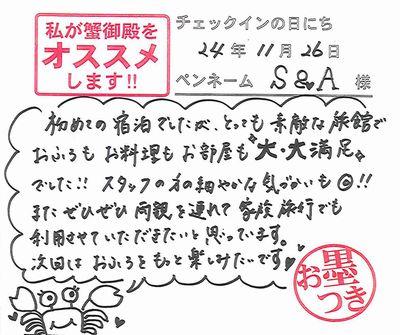 私が蟹御殿を
オススメ
します!!
チェックインの日にち
24年 11月 26日
ペンネーム S&A 様
初めての宿泊でしたが、とっても素敵な旅館で
おふろもお料理もお部屋も"大・大満足"
でした!! スタッフの方の細やかな気づかいも◎!!
またぜひぜひ両親を連れて家族旅行でも
利用させていただきたいと思っています。
次回はおふろをもっと楽しみたいです♥
墨
おつき